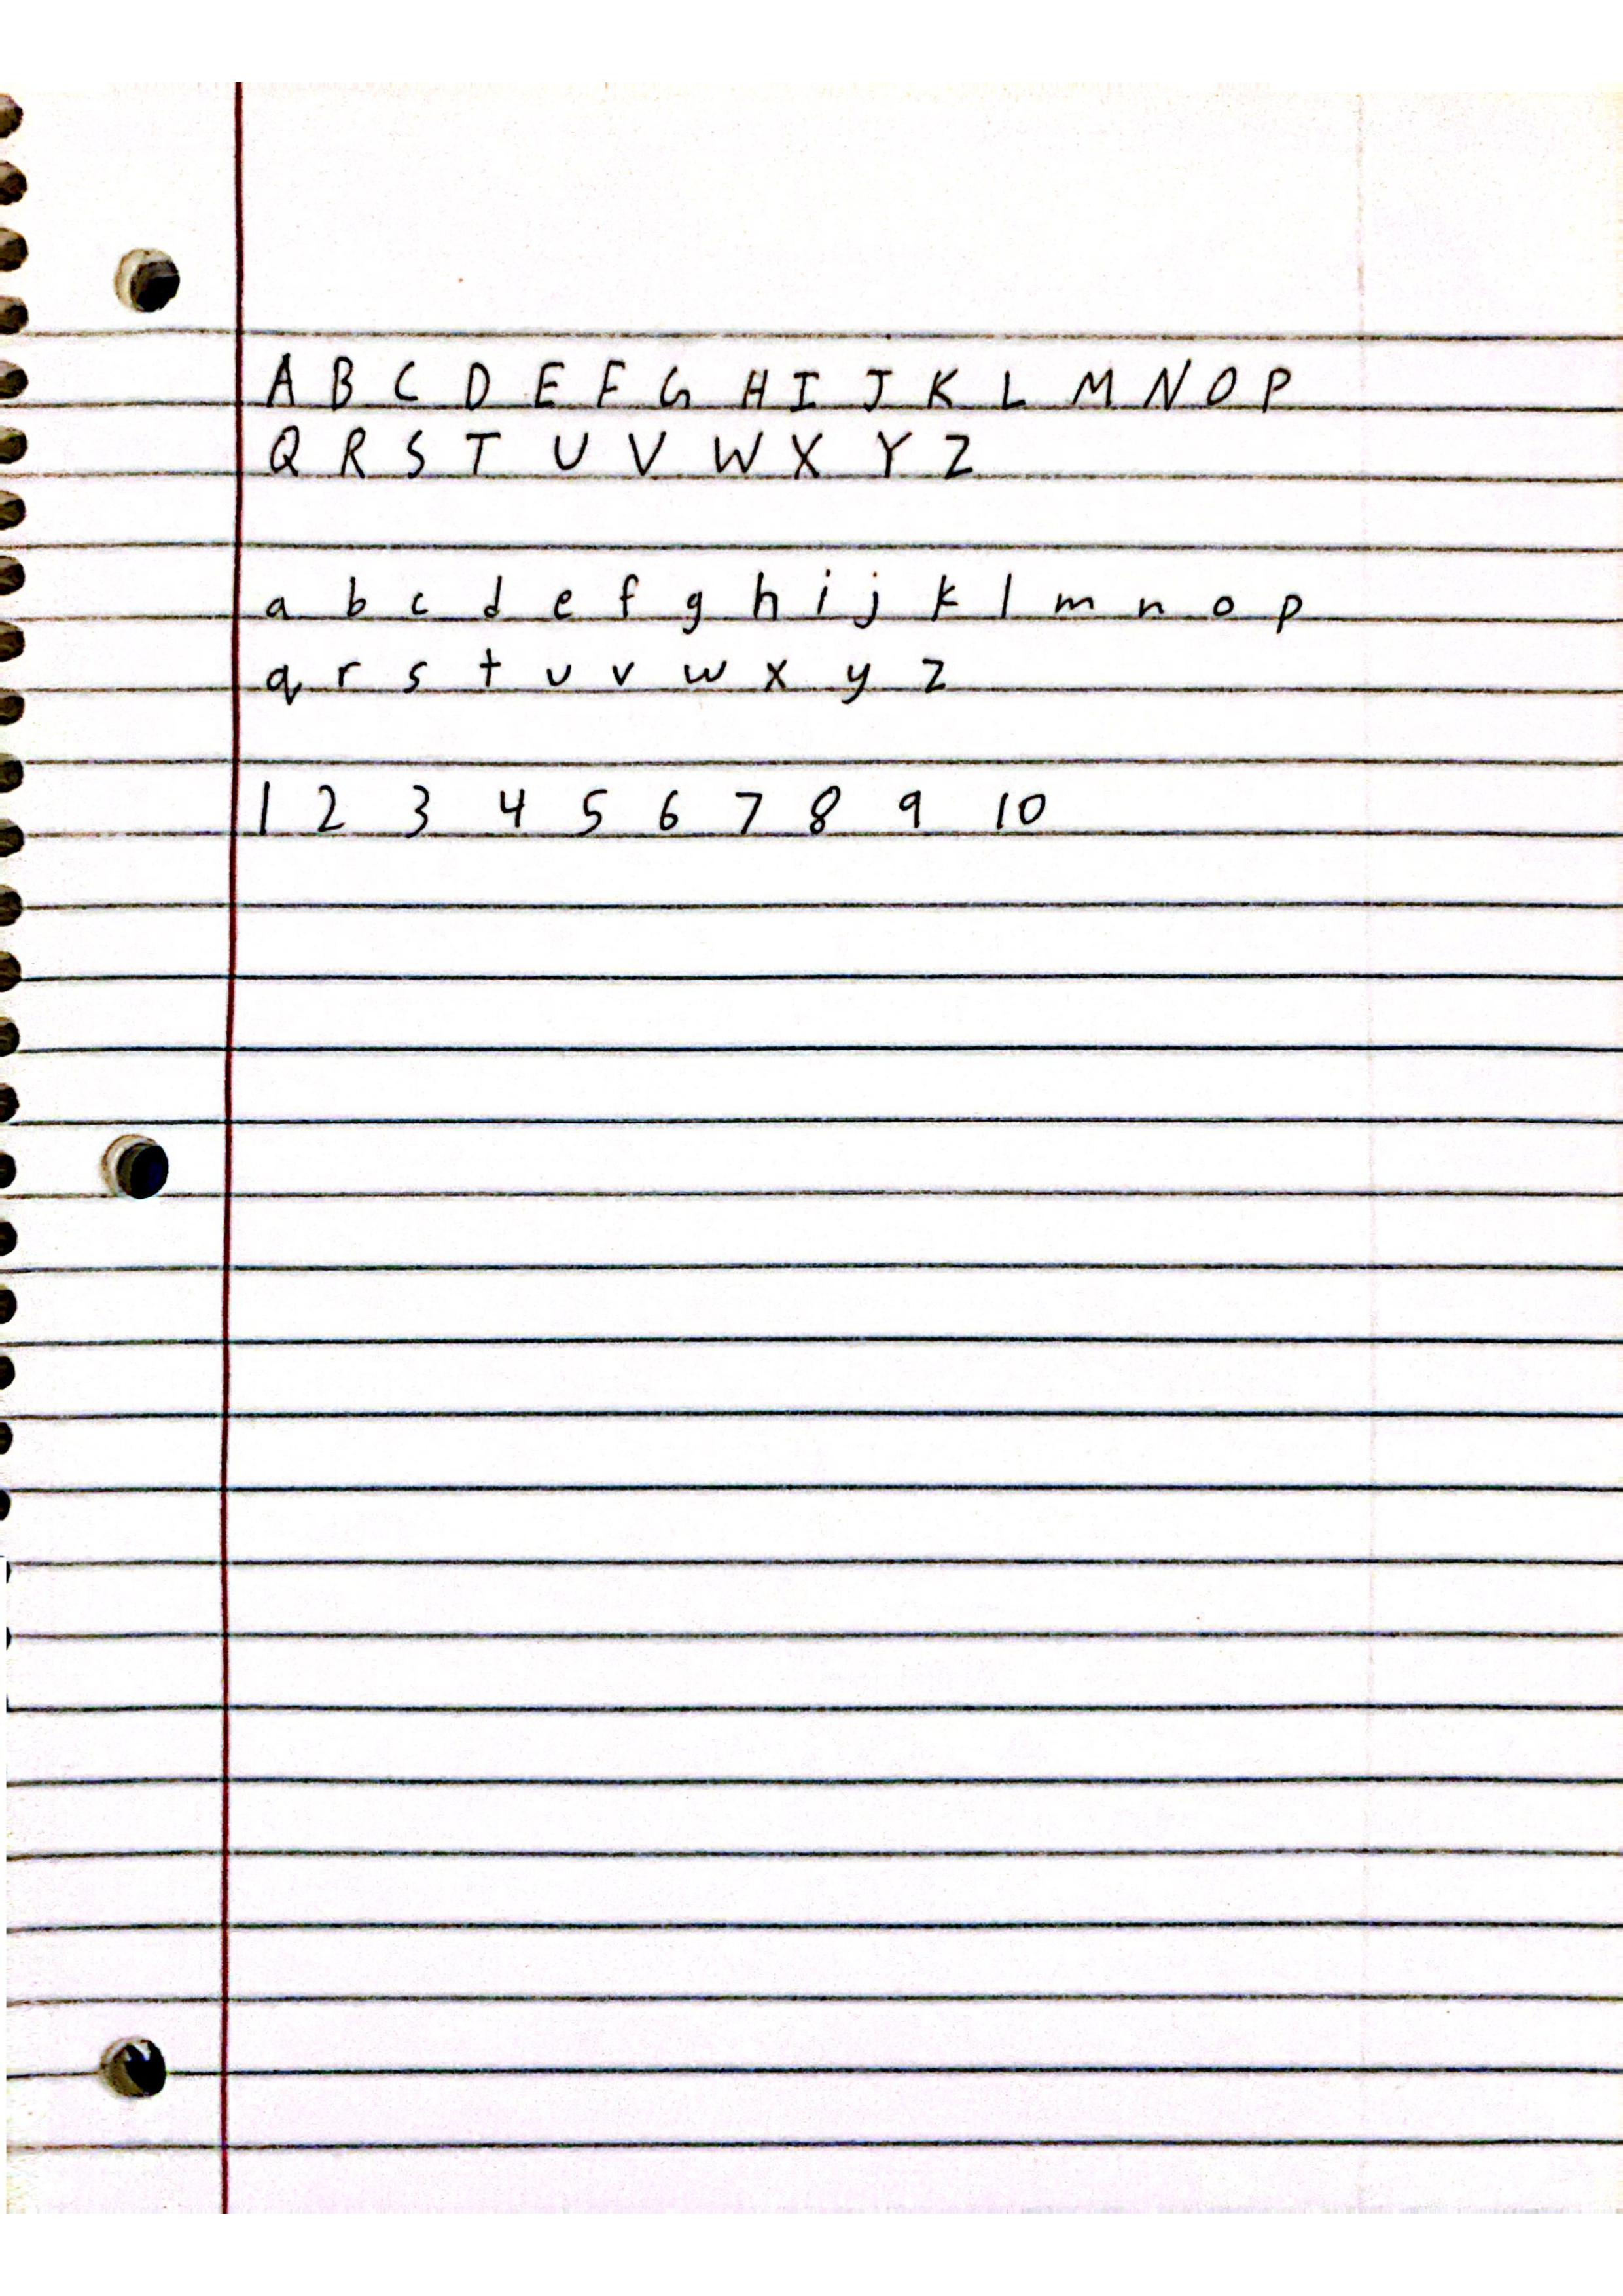 A B C D E F G H I J K L M N O P
Q R S T U V W X Y Z
a b c d e f g h i j k l m n o p
q r s t u v w x y z
1 2 3 4 5 6 7 8 9 10